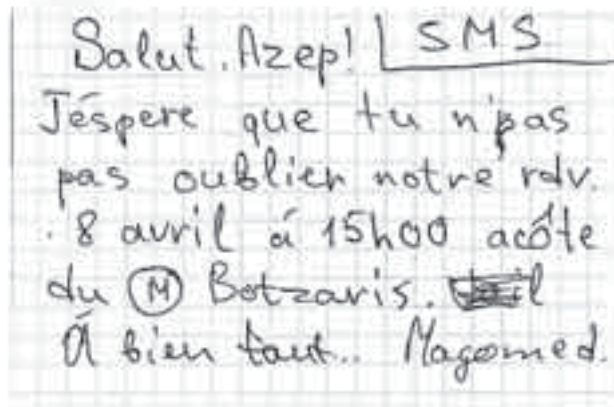 Salut. Azep! SMS
J'éspere que tu n'pas
pas oublier notre rdv.
8 avril á 15h00 acôte
du M Botzaris.
Á bien taut.. Magomed.